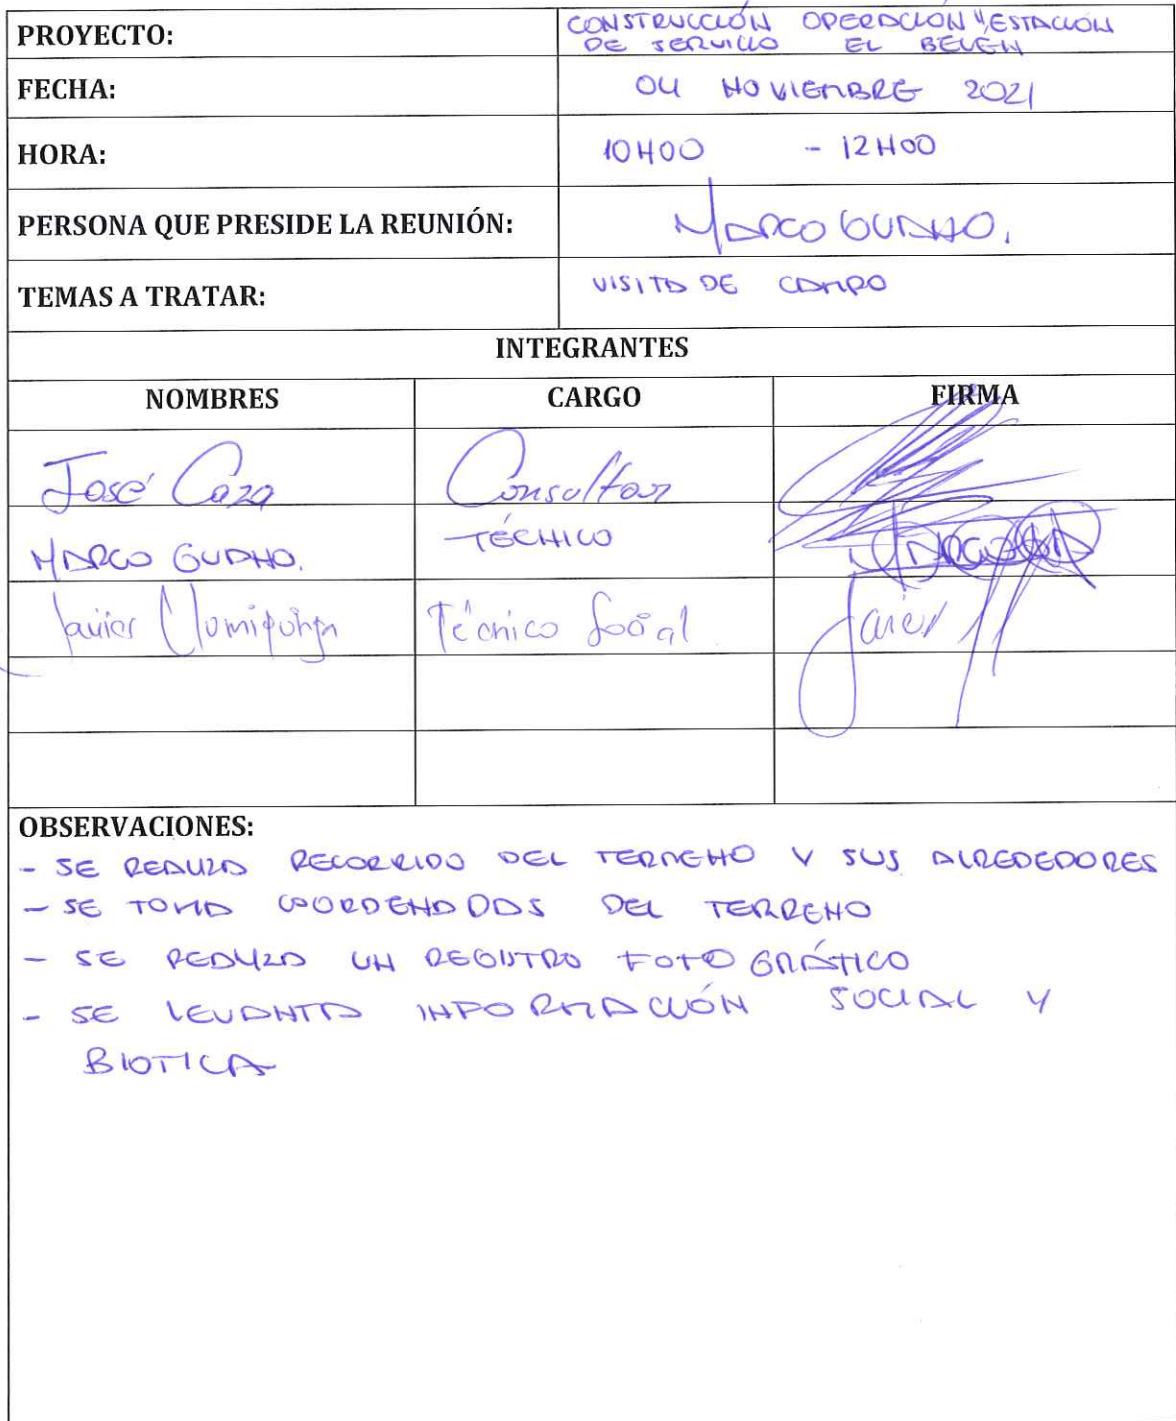 PROYECTO: CONSTRUCCIÓN OPERACIÓN Y ESTACIÓN
DE SERVICIO EL BELÉN
FECHA: 04 NOVIEMBRE 2021
HORA: 10H00 - 12H00
PERSONA QUE PRESIDE LA REUNIÓN: MARCO GUANO.
TEMAS A TRATAR: VISITA DE CAMPO
INTEGRANTES
NOMBRES CARGO FIRMA
José Caza Consultor
MARCO GUANO. TÉCNICO
Javier Técnico Social Javier
OBSERVACIONES:
- SE REALIZA RECORRIDO DEL TERRENO Y SUS ALREDEDORES
- SE TOMA COORDENADAS DEL TERRENO
- SE REALIZA UN REGISTRO FOTOGRÁFICO
- SE LEVANTA INFORMACIÓN SOCIAL Y
BIOTICA